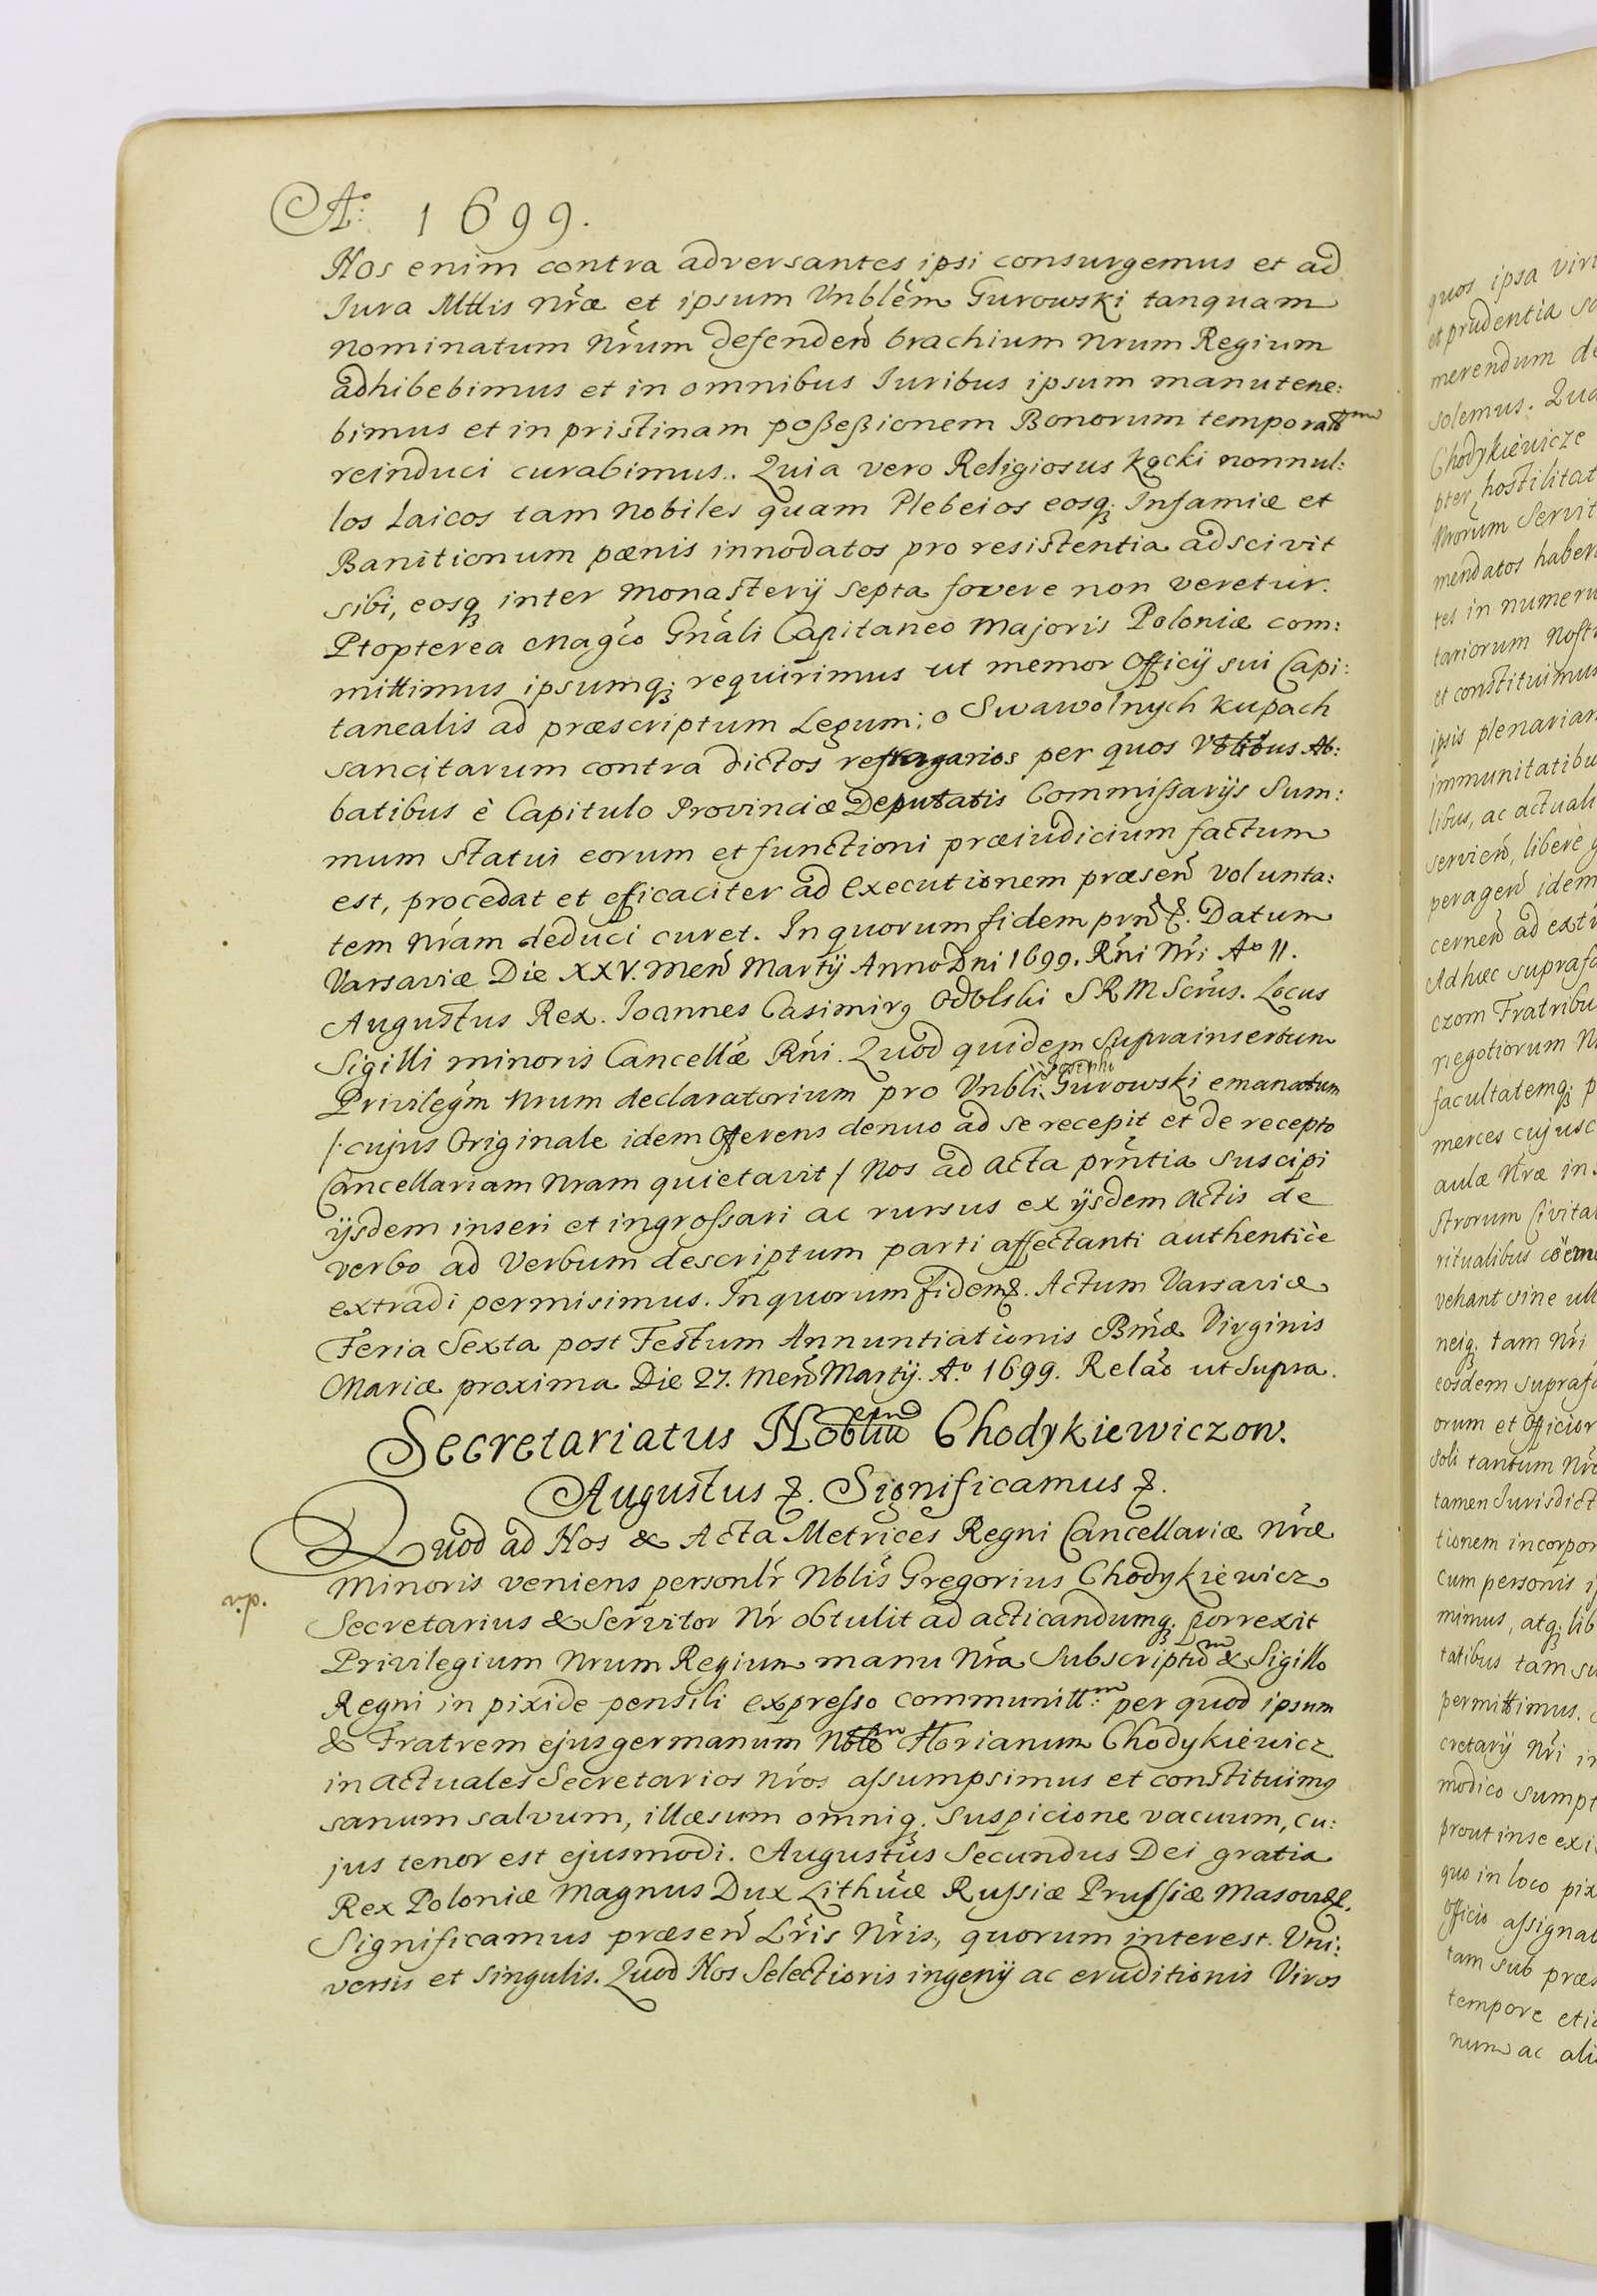 Aº: 1699.
Nos enim contra adversantes ipsi consurgemus et ad
Iura Mttis Nræ et ipsum Vnblem Gurowski tanquam
nominatum Nrum defenden brachium Nrum Regium
adhibebimus et in omnibus Iuribus ipsum manutene:
bimus et in pristinam poßeßionem Bonorum temporali͠um
reinduci curabimus. Quia vero Religiosus Kącki nonnul:
los Laicos tam Nobiles quam Plebeios eosq; Infamiæ et
Banitionum pænis innodatos pro resistentia adscivit
sibi, eosq; inter Monasterÿ septa fovere non veretur.
Ptopterea Magco Gnali Capitaneo Majoris Poloniæ com:
mittimus ipsumq; requirimus ut memor Officÿ sui Capi:
tanealis ad præscriptum Legum; o Swawolnych kupach
sancitarum contra dictos refragarios per quos Vblibus Ab:
batibus è Capitulo Provinciæ Deputatis Commissarÿs Sum:
mum statui eorum et functioni præiudicium factum
est, procedat et efficaciter ad Executionem præsen volunta:
tem Nram deduci curet. In quorum fidem prn &. Datum
Varsaviæ Die XXV. Men Martÿ Anno Dni 1699. Rñi Nri Aº II.
Augustus Rex. Ioannes Casimirg Odolski SRM Scrus. Locus
Sigilli minoris Cancellæ Rñi. Quod quidem suprainsertum
Privilegm Nrum declaratorium pro Vnbli Josephi Gurowski emanatum
/: cujus Originale idem Offerens denuo ad se recepit et de recepto
Cancellariam Nram quietavit / Nos ad Acta prntia suscipi
ÿsdem inseri et ingrossari ac rursus ex ÿsdem Actis de
verbo ad Verbum descriptum parti affectanti authenticè
extradi permisimus. In quorum fidem &. Actum Varsaviæ
Feria Sexta post Festum Annuntiationis Bmæ Virginis
Mariæ proxima Die 27. Men Martÿ. Aº 1699. Relao ut Supra.
Secretariatus Nobliu Chodykiewiczow.
Augustus &. Significamus &.
Quod ad Nos & Acta Metrices Regni Cancellariæ Nræ
Minoris veniens personlr Nblis Gregorius Chodykiewicz
v.p.
Secretarius & Servitor Nr obtulit ad acticandumq; porrexit
Privilegium Nrum Regium manu Nra Subscriptum & Sigillo
Regni in pixide pensili expresso communitt:m per quod ipsum
& Fratrem ejus germanum Noblem Florianum Chodykiewicz
in actuales Secretarios Nros assumpsimus et constituimg
sanum salvum, illæsum omniq; suspicione vacuum, cu:
jus tenor est ejusmodi. Augustus Secundus Dei gratia
Rex Poloniæ Magnus Dux Lithuæ Russiæ Prussiæ Masov &.
Significamus præsen Lris Nris, quorum interest. Vni:
versis et singulis. Quod Nos Selectioris ingenÿ ac eruditionis Viros
quos ipsa
et prudentia
merendum
solemus.
Chodykiewicze
hostilitat
Nrorum Servit
mendatos haben
tes in numeru
tariorum Nostr
et constituimus
ipsis plenarian
immunitatibu
libus, ac actuali
servien, libere
peragen idem
cernen ad
Ad hæc suprafa
czom Fratribu
negotiorum
facultatemq;
merces cujusc
aulæ Nræ in
strorum Civitat
ritualibus
vehant sine ull
neiq; tam Nri
eosdem suprafa
orum et Officior
soli tantum
tamen Iurisdict
tionem incorpor
cum personis
mimus, atq; lib
tatibus tam su
permittimus.
cretarÿ Nri
modico sumpt
prout in se
quo in loco pix
officio assignat
tam sub præs
tempore
num ac ali